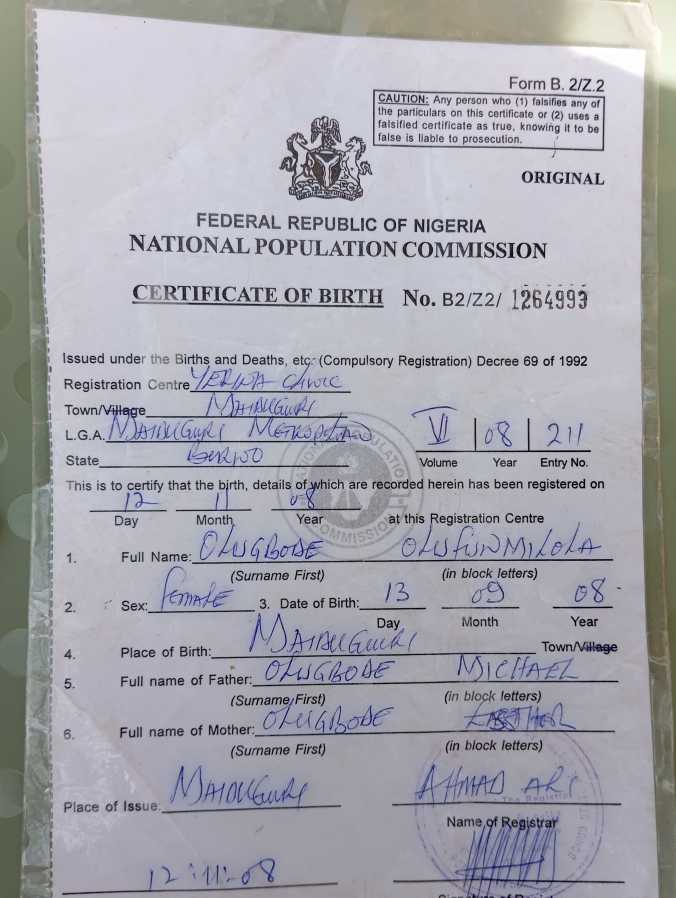 Form B. 2/Z.2
CAUTION: Any person who (1) falsifies any of
the particulars on this certificate or (2) uses a
falsified certificate as true, knowing it to be
false is liable to prosecution.
ORIGINAL
FEDERAL REPUBLIC OF NIGERIA
NATIONAL POPULATION COMMISSION
CERTIFICATE OF BIRTH No. B2/Z2/ 1264993
Issued under the Births and Deaths, etc. (Compulsory Registration) Decree 69 of 1992
Registration Centre YERWA Clinic
Town/Village MAIDUGURI
L.G.A. MAIDUGURI METROPOLITAN VI 08 211
State BORNO Volume Year Entry No.
This is to certify that the birth, details of which are recorded herein has been registered on
12 11 08
Day Month Year at this Registration Centre
1. Full Name: OLUGBODE OLUFUNMILOLA
(Surname First) (in block letters)
2. Sex: FEMALE 3. Date of Birth: 13 09 08
Day Month Year
4. Place of Birth: MAIDUGURI Town/Village
5. Full name of Father: OLUGBODE MICHAEL
(Surname First) (in block letters)
6. Full name of Mother: OLUGBODE
(Surname First) (in block letters)
Place of Issue: MAIDUGURI AHMAD
Name of Registrar
12:11:08